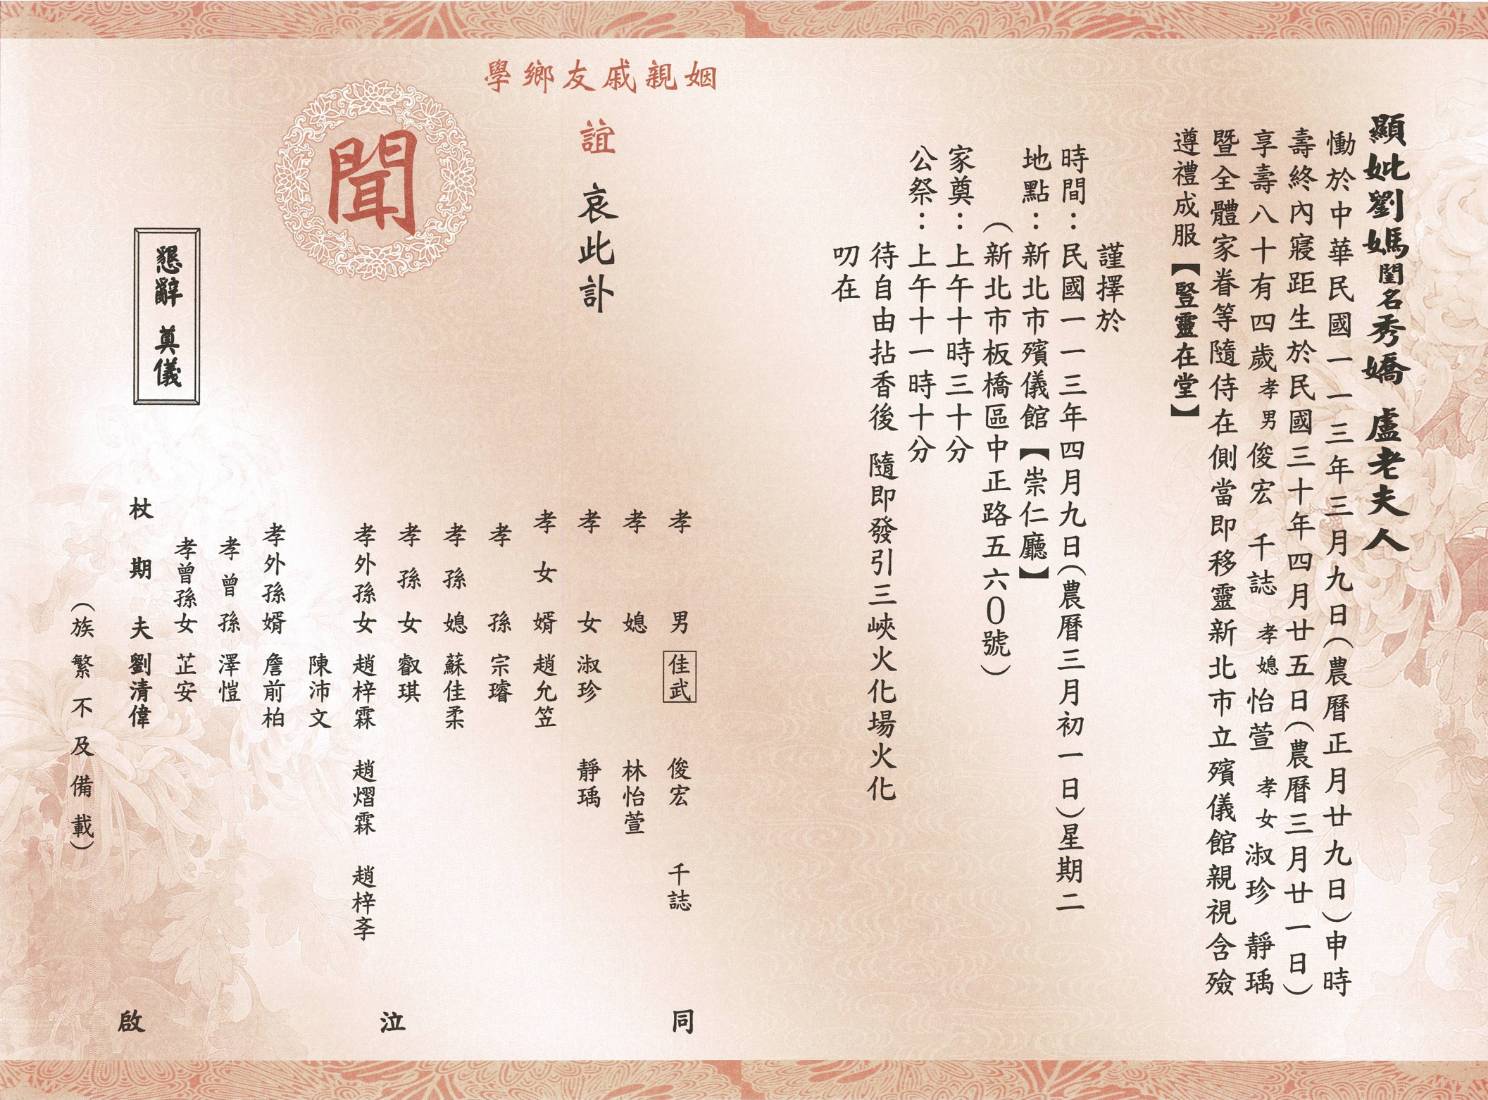 顯妣劉媽閨名秀嬌 盧老夫人
慟於中華民國一一三年三月九日(農曆正月廿九日)申時
壽終內寢距生於民國三十年四月廿五日(農曆三月廿一日)
享壽八十有四歲孝男俊宏 千誌 孝媳怡萱 孝女淑珍 靜瑀
暨全體家眷等隨侍在側當即移靈新北市立殯儀館親視含殮
遵禮成服【豎靈在堂】
謹擇於
時間：民國一一三年四月九日(農曆三月初一日)星期二
地點：新北市殯儀館【崇仁廳】
(新北市板橋區中正路五六0號)
家奠：上午十時三十分
公祭：上午十一時十分
待自由拈香後 隨即發引三峽火化場火化
叨在
姻親戚友鄉學
誼 哀此訃
聞
懇辭 奠儀
孝男 佳武 俊宏 千誌
孝媳 林怡萱
孝女 淑珍 靜瑀
孝女婿 趙允笠
孝孫 宗璿
孝孫媳 蘇佳柔
孝孫女 叡琪
孝外孫女 趙梓霖 趙熠霖 趙梓夆
陳沛文
孝外孫婿 詹前柏
孝曾孫 澤愷
孝曾孫女 芷安
杖期夫 劉清偉
(族繁不及備載)
同 泣 啟